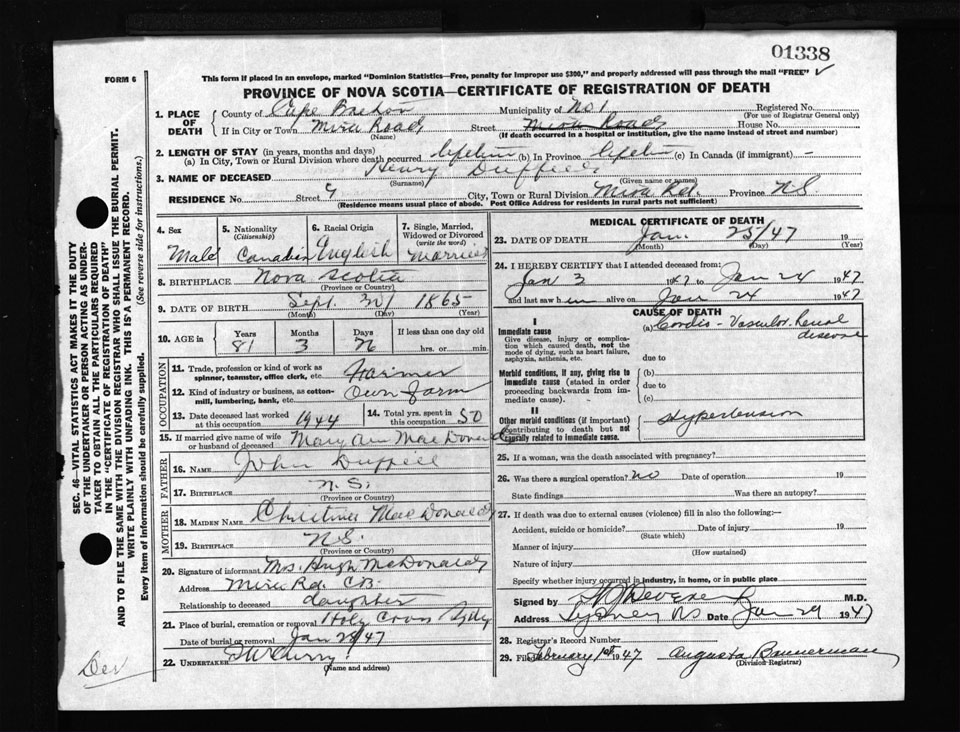 01338
FORM 6
This form if placed in an envelope, marked "Dominion Statistics—Free, penalty for improper use $300," and properly addressed will pass through the mail "FREE" ✓
PROVINCE OF NOVA SCOTIA—CERTIFICATE OF REGISTRATION OF DEATH
1. PLACE OF DEATH
County of Cape Breton Municipality of No 1 Registered No.
(For use of Registrar General only)
If in City or Town Mira Road Street Mira Road House No.
(Name) (If death occurred in a hospital or institution, give the name instead of street and number)
2. LENGTH OF STAY (in years, months and days)
(a) In City, Town or Rural Division where death occurred lifetime (b) In Province lifetime (c) In Canada (if immigrant) —
3. NAME OF DECEASED Henry Duffiell
(Surname) (Given name or names)
RESIDENCE No. Street City, Town or Rural Division Mira Rd. Province N S
(Residence means usual place of abode. Post Office Address for residents in rural parts not sufficient)
4. Sex
Male
5. Nationality
(Citizenship)
Canadian
6. Racial Origin
English
7. Single, Married, Widowed or Divorced
(write the word)
Married
8. BIRTHPLACE Nova Scotia
(Province or Country)
9. DATE OF BIRTH Sept. 1865
(Month) (Day) (Year)
10. AGE in Years Months Days If less than one day old
81 3 hrs. or min.
OCCUPATION
11. Trade, profession or kind of work as spinner, teamster, office clerk, etc. Farmer
12. Kind of industry or business, as cotton-mill, lumbering, bank, etc. Own Farm
13. Date deceased last worked at this occupation 1944
14. Total yrs. spent in this occupation 50
15. If married give name of wife or husband of deceased Mary Ann MacDonald
FATHER
16. NAME John Duffiell
17. BIRTHPLACE N. S.
(Province or Country)
MOTHER
18. MAIDEN NAME Christina MacDonald
19. BIRTHPLACE N S.
(Province or Country)
20. Signature of informant Mrs. Hugh McDonald
Address Mira Rd. C.B.
Relationship to deceased daughter
21. Place of burial, cremation or removal Holy Cross Sydy
Date of burial or removal Jan 28/47
22. UNDERTAKER
(Name and address)
MEDICAL CERTIFICATE OF DEATH
23. DATE OF DEATH Jan. 25/47 19
(Month) (Day) (Year)
24. I HEREBY CERTIFY that I attended deceased from:
Jan 3 1947 to Jan 24 1947
and last saw him alive on Jan 24 1947
CAUSE OF DEATH
I
Immediate cause
Give disease, injury or complication which caused death, not the mode of dying, such as heart failure, asphyxia, asthenia, etc.
(a) Cardio-Vascular Renal disease
due to
Morbid conditions, if any, giving rise to immediate cause (stated in order proceeding backwards from immediate cause).
(b)
due to
(c)
II
Other morbid conditions (if important) contributing to death but not causally related to immediate cause.
Hypertension
25. If a woman, was the death associated with pregnancy?
26. Was there a surgical operation? no Date of operation 19
State findings Was there an autopsy?
27. If death was due to external causes (violence) fill in also the following:—
Accident, suicide or homicide? Date of injury 19
(State which)
Manner of injury
(How sustained)
Nature of injury
Specify whether injury occurred in industry, in home, or in public place
Signed by M.D.
Address Sydney NS Date Jan 29 1947
28. Registrar's Record Number
29. Filed February 1st 1947 Augusta Bannerman
(Division Registrar)
SEC. 46—VITAL STATISTICS ACT MAKES IT THE DUTY
OF THE UNDERTAKER OR PERSON ACTING AS UNDER-
TAKER TO OBTAIN ALL THE PARTICULARS REQUIRED
IN THE "CERTIFICATE OF REGISTRATION OF DEATH"
AND TO FILE THE SAME WITH THE DIVISION REGISTRAR WHO SHALL ISSUE THE BURIAL PERMIT.
WRITE PLAINLY WITH UNFADING INK. THIS IS A PERMANENT RECORD.
Every item of information should be carefully supplied. (See reverse side for instructions.)
Dev